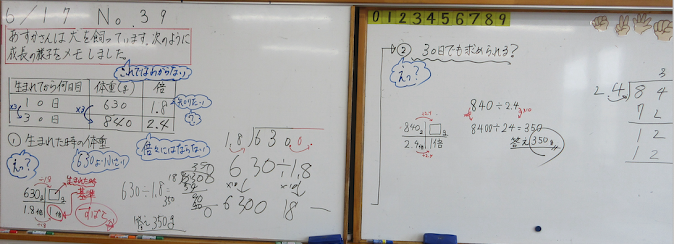 6/17 No.39
あすかさんは犬を飼っています。次のように
成長の様子をメモしました。
これではわからない
生まれてから何日目 体重(g) 倍
10日 630 1.8
30日 840 2.4
×3 ×3
① 生まれた時の体重
倍々にはならない
えっ?
630g □g
1.8倍 1倍
÷1.8
÷1.8
基準
630÷1.8=
350
答え350g
1.8)630.0
630÷1.8
×10 ×10
6300 18
0123456789
② 30日でも求められる?
えっ?
840g □g
2.4倍 1倍
÷2.4
÷2.4
840÷2.4
8400÷24=350
答え350g
3
24)84
72
12
12